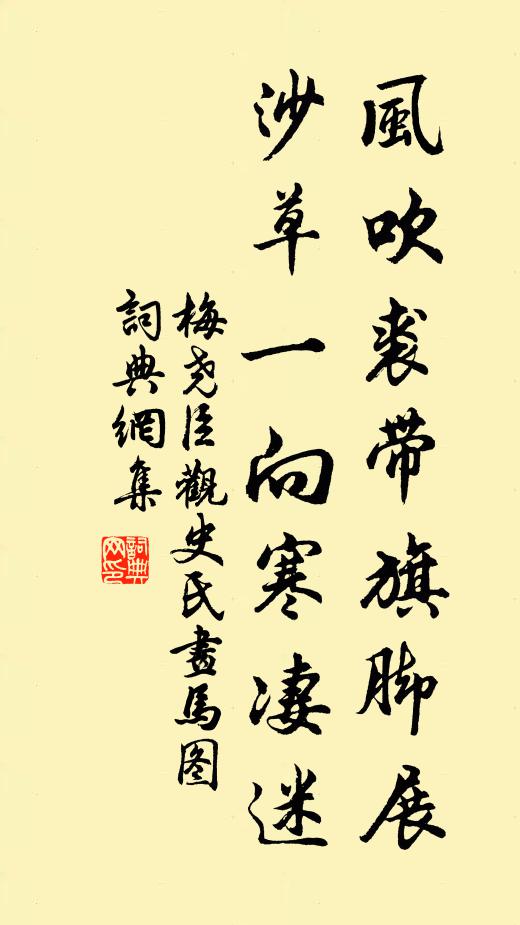 風吹裘帶旗脚展
沙草一向寒凄迷
梅尧臣觀史氏畫馬图
詞典網集
詞典網印